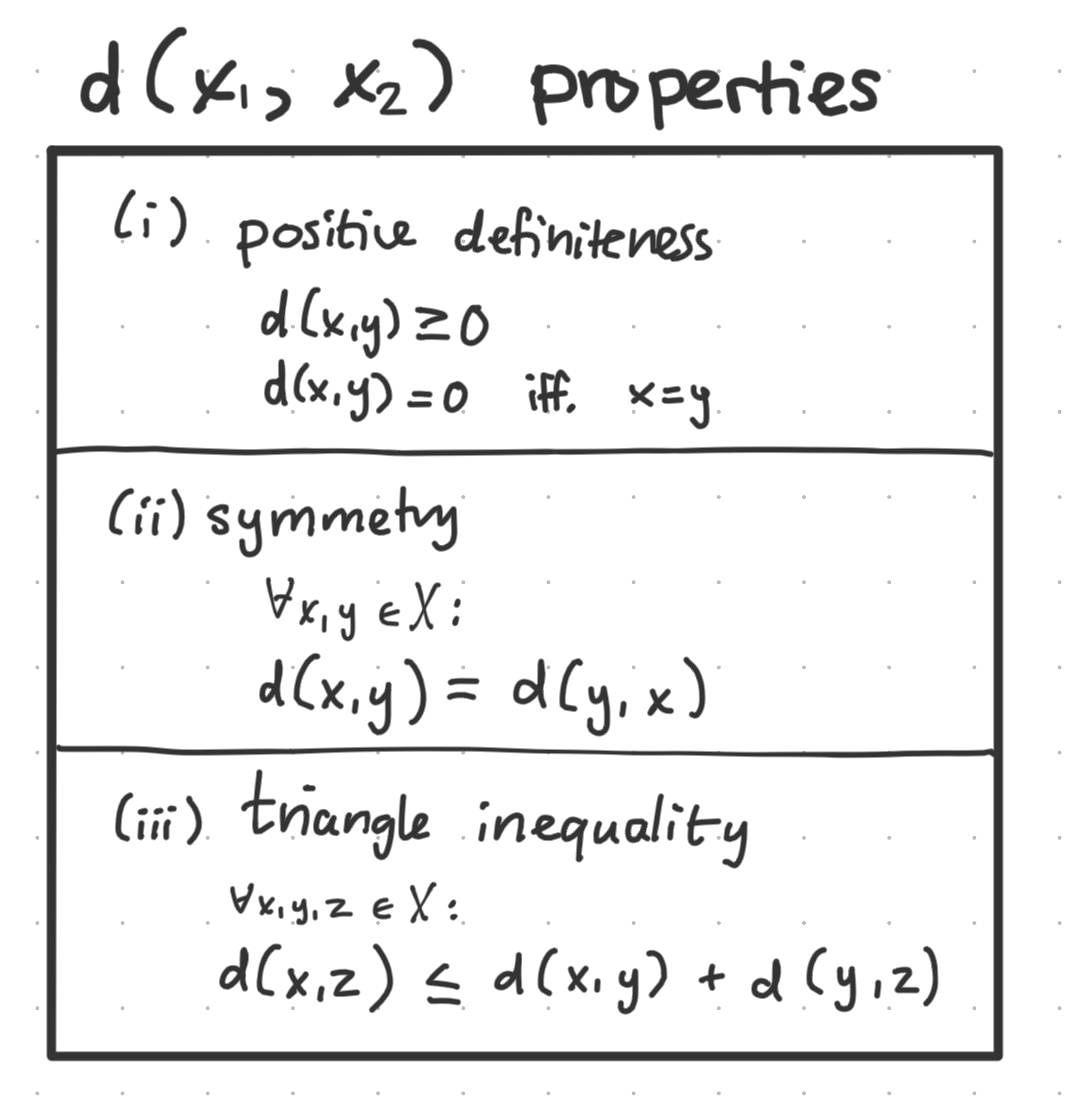 d(x₁, x₂) properties
(i) positive definiteness
d(x,y) ≥ 0
d(x,y) = 0 iff. x=y
(ii) symmetry
∀x,y ∈ X:
d(x,y) = d(y,x)
(iii) triangle inequality
∀x,y,z ∈ X:
d(x,z) ≤ d(x,y) + d(y,z)